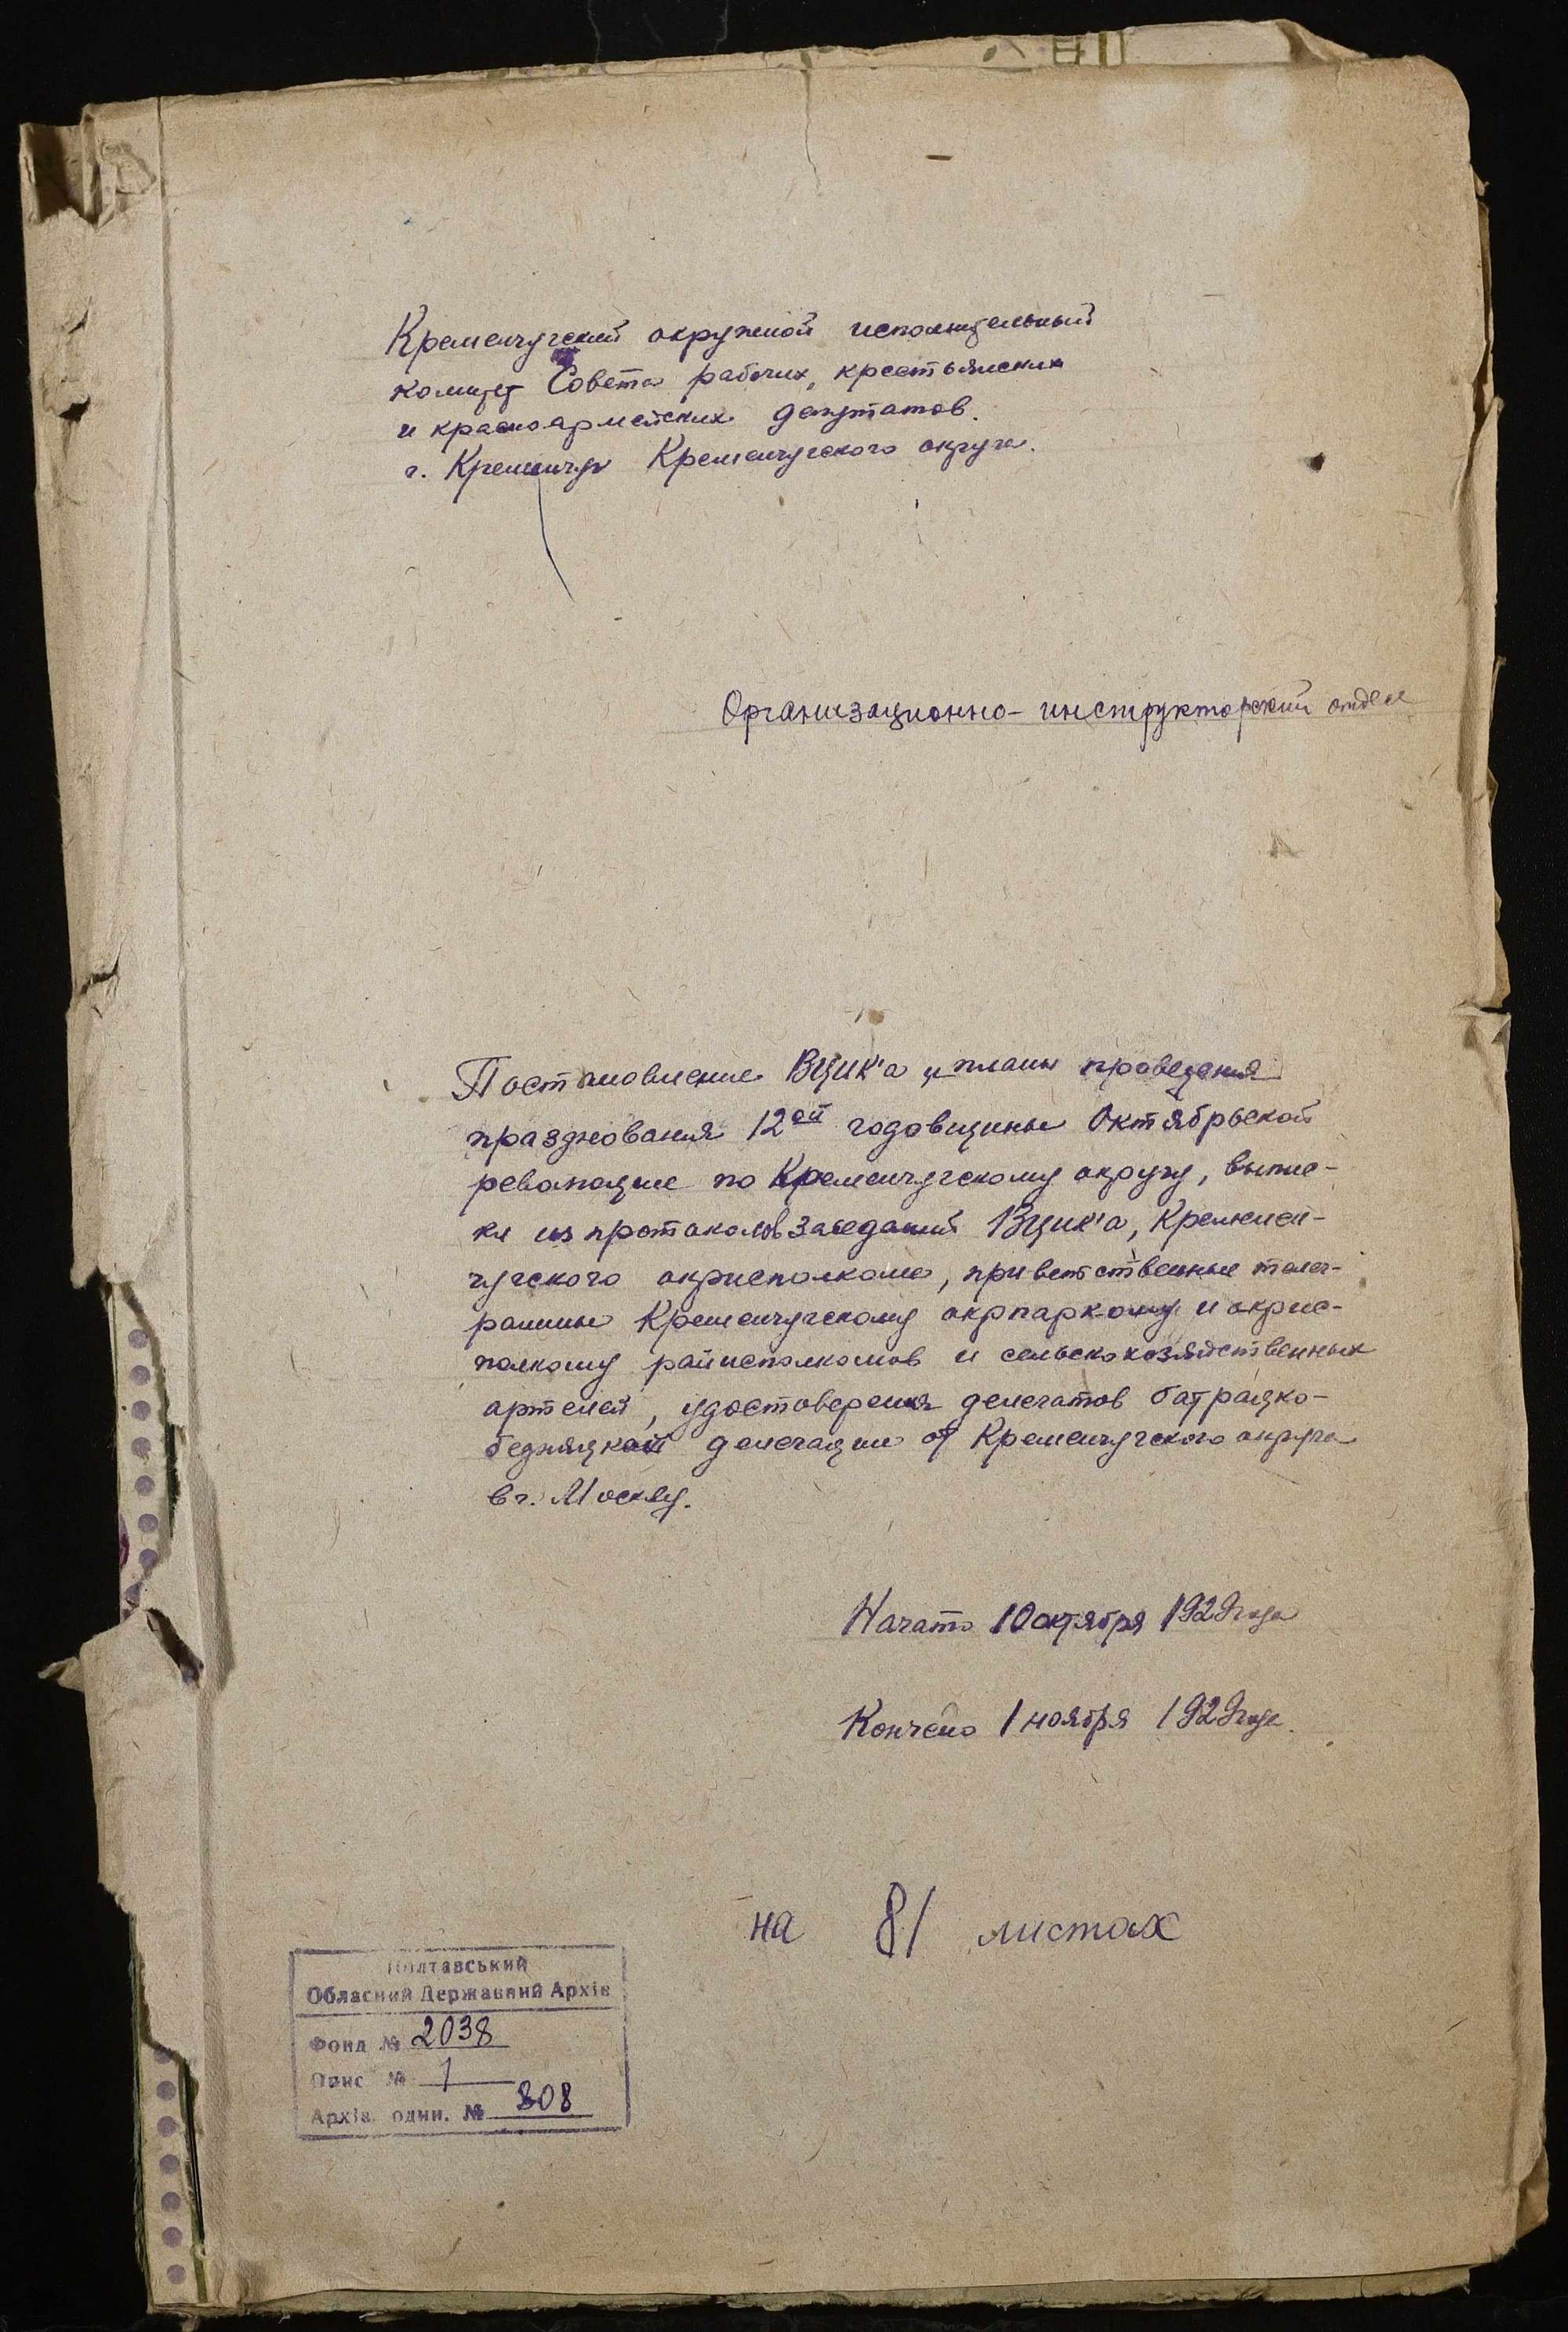 Кременчугский окружной исполнительный
комитет Совета рабочих, крестьянских
и красноармейских депутатов.
г. Кременчуг Кременчугского округа.
Организационно-инструкторский отдел
Постановление ВЦИК'а и планы проведения
празднования 12ой годовщины Октябрьской
революции по Кременчугскому округу, выпис-
ки из протоколов заседаний ВЦИК'а, Кременчугского
чугского окрисполкома, приветственные телег-
раммы Кременчугскому окрпаркому и окрис-
полкому райисполкомов и сельскохозяйственных
артелей, удостоверения делегатов батрацко-
бедняцкой делегации от Кременчугского округа
в г. Москву.
Начато 10 октября 1929 года
Кончено 1 ноября 1929 года.
на 81 листах
Полтавський
Обласний Державний Архів
Фонд № 2038
Опис № 1
Архів. один. № 808